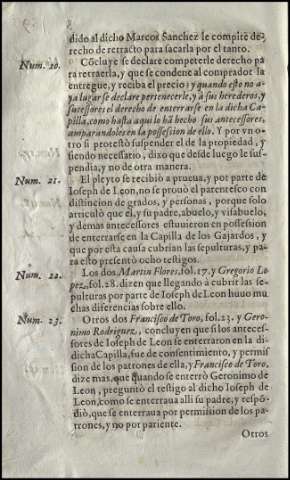 dido al dicho Marcos Sanchez le compitè de-
recho de retracto para sacarla por el tanto.
Num. 20. Cõcluye se declare competerle derecho para
retraerla, y que se condene al comprador la
entregue, y reciba el precio; y quando esto no a-
ya lugar se declare pertenecerle, y à sus herederos, y
sucessores el derecho de enterrarse en la dicha Ca-
pilla, como hasta aqui lo hã hecho sus antecessores,
amparandoles en la possession de ello. Y por vn o-
tro si protestò suspender el de la propiedad, y
siendo necessario, dixo que desde luego le sus-
pendia, y no de otra manera.
Num. 21. El pleyto se recibiò a prueua, y por parte de
Ioseph de Leon, no se prouò el parentesco con
distincion de grados, y personas, porque solo
articulò que el, y su padre, abuelo, y visabuelo,
y demas antecessores estuuieron en possession
de enterrarse en la Capilla de los Gajardos, y
que por esta causa cubrian las sepulturas, y pa-
ra esto presentò ocho testigos.
Num. 22. Los dos Martin Flores, fol. 17. y Gregorio Lo-
pez, fol. 28. dizen que llegando à cubrir las se-
pulturas por parte de Ioseph de Leon huuo mu-
chas diferencias sobre ello.
Num. 23. Otros dos Francisco de Toro, fol. 23. y Gero-
nimo Rodriguez, concluyen que si los anteces-
sores de Ioseph de Leon se enterraron en la di-
dicha Capilla, fue de consentimiento, y permis-
sion de los patrones de ella, y Francisco de Toro,
dize mas, que quando se enterrò Geronimo de
Leon, preguntò el testigo al dicho Ioseph de
Leon, como se enterraua alli su padre, y respõ-
diò, que se enterraua por permision de los pa-
trones, y no por pariente.
Otros